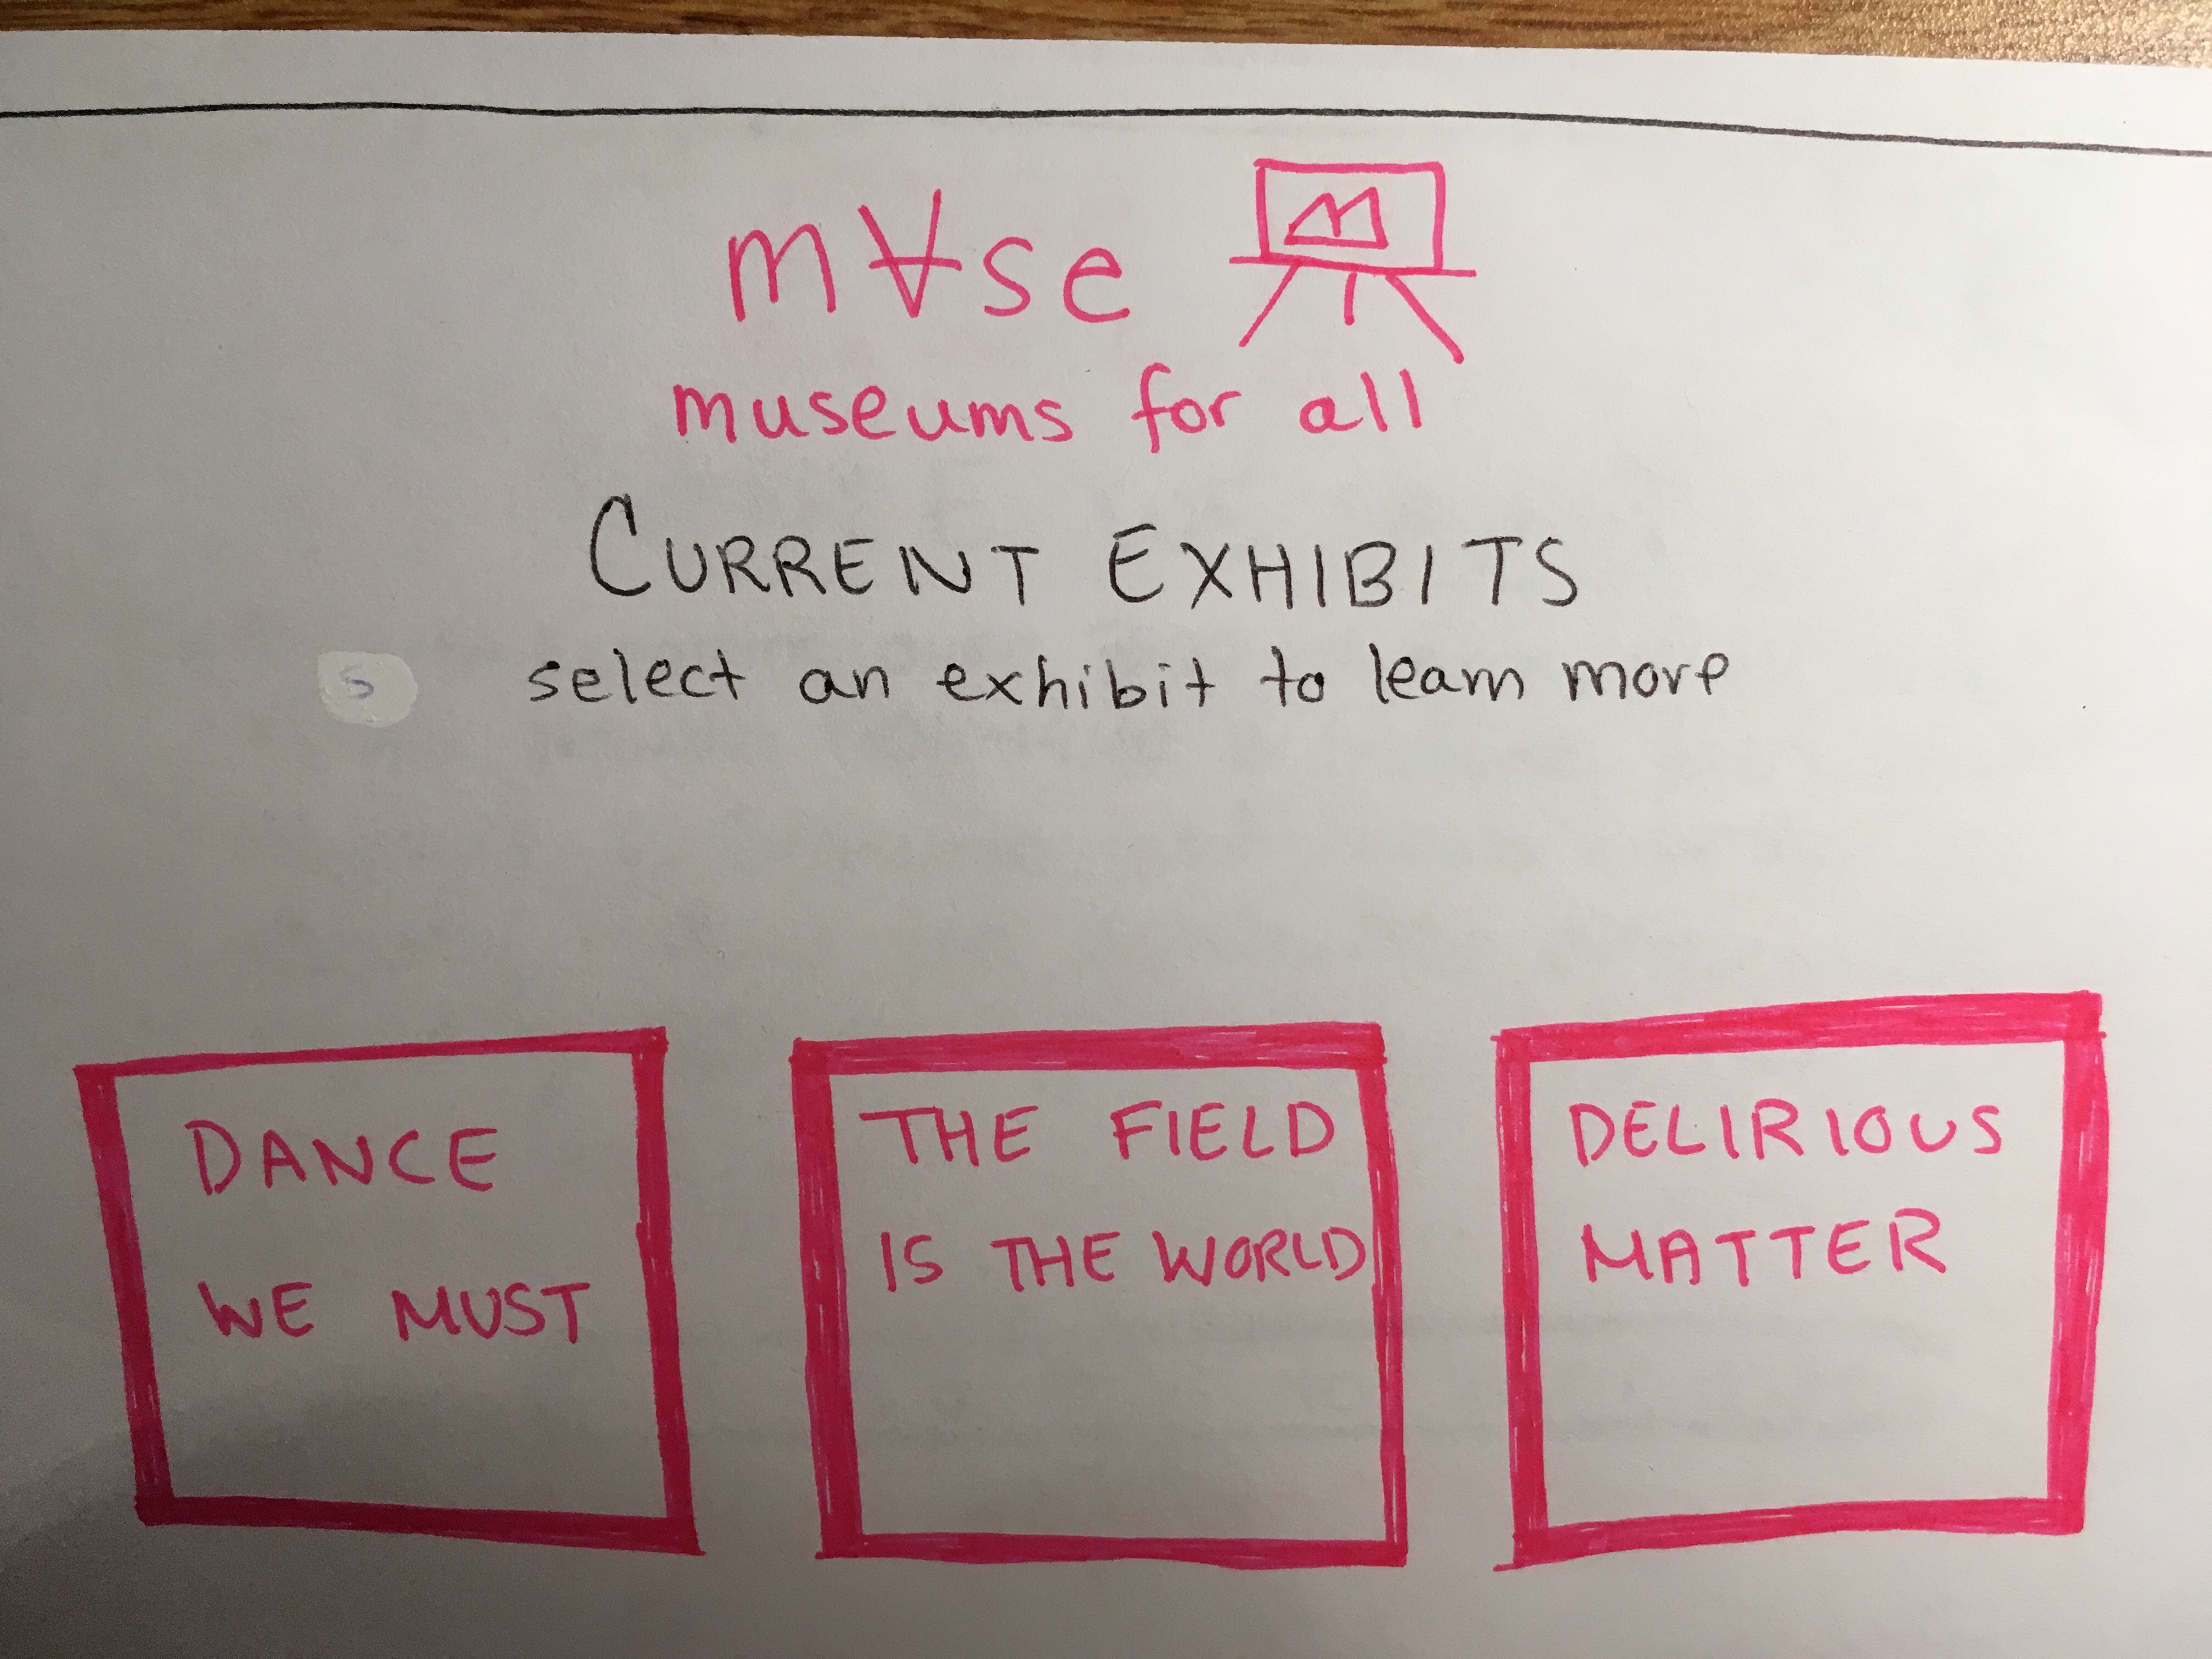 m∀se
museums for all
CURRENT EXHIBITS
s
select an exhibit to learn more
DANCE
WE MUST
THE FIELD
IS THE WORLD
DELIRIOUS
MATTER